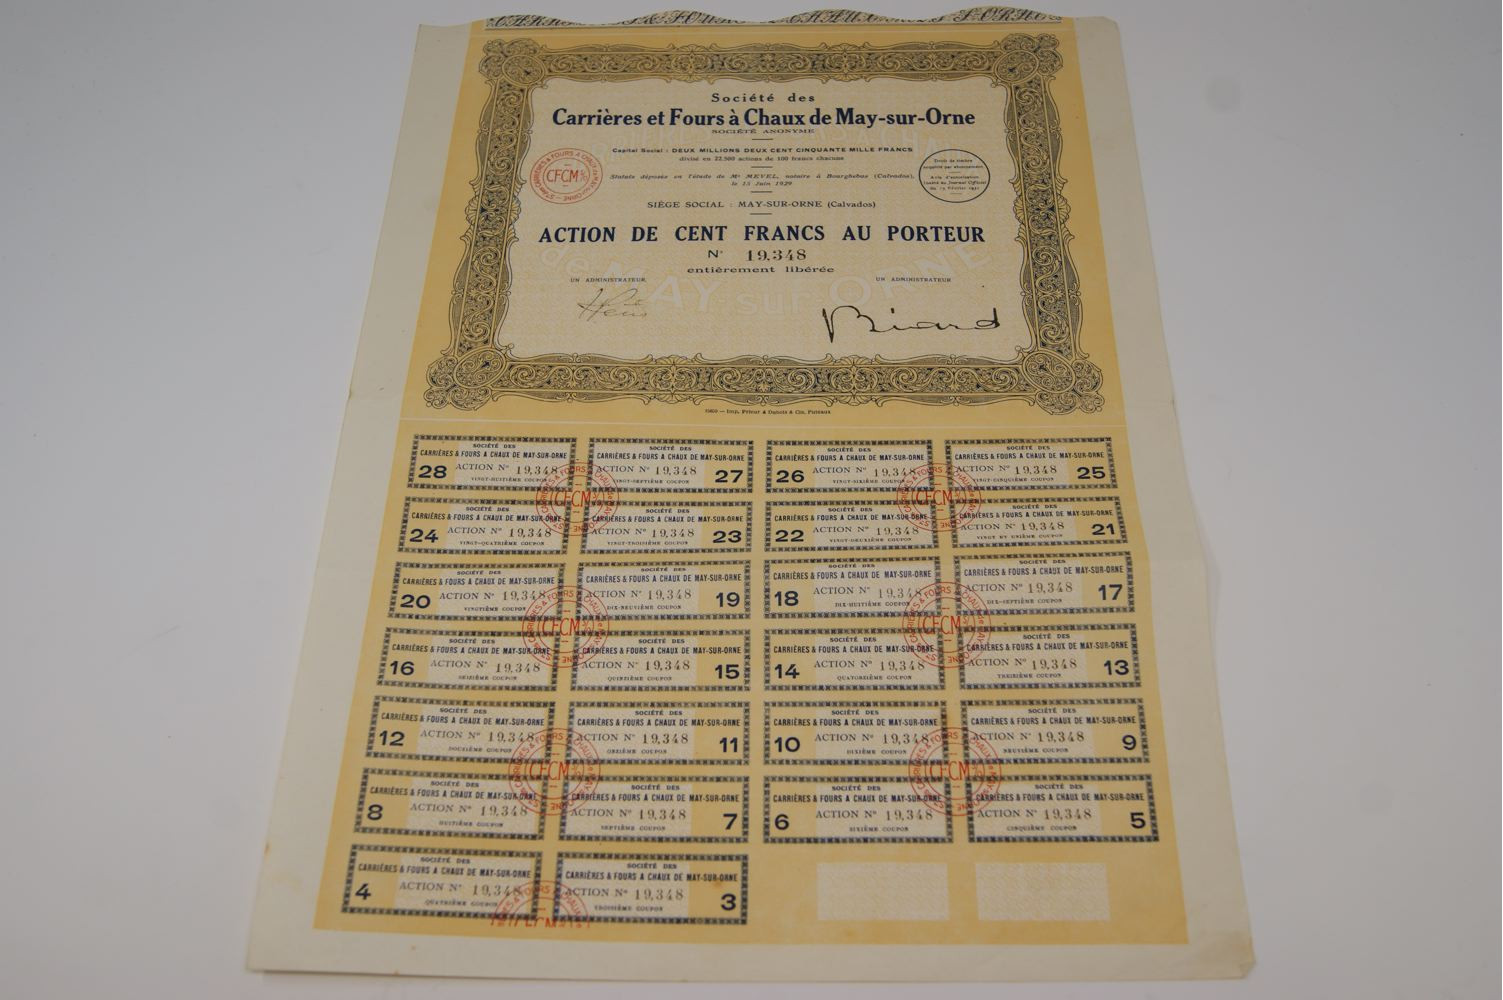 Société des
Carrières et Fours à Chaux de May-sur-Orne
SOCIÉTÉ ANONYME
Capital Social : DEUX MILLIONS DEUX CENT CINQUANTE MILLE FRANCS
divisé en 22.500 actions de 100 francs chacune
Statuts déposés en l'étude de Me MEVEL, notaire à Bourghebus (Calvados),
le 15 Juin 1929
CFCM
Droit de timbre
acquitté par abonnement
Avis d'autorisation
inséré au Journal Officiel
SIÈGE SOCIAL : MAY-SUR-ORNE (Calvados)
ACTION DE CENT FRANCS AU PORTEUR
N° 19.348
entièrement libérée
de MAY sur ORNE
UN ADMINISTRATEUR, UN ADMINISTRATEUR
Biard
Imp. Prieur & Dubois & Cie, Puteaux
SOCIÉTÉ DES
CARRIÈRES & FOURS A CHAUX DE MAY-SUR-ORNE
28 ACTION N° 19,348
VINGT-HUITIÈME COUPON
SOCIÉTÉ DES
CARRIÈRES & FOURS A CHAUX DE MAY-SUR-ORNE
ACTION N° 19,348 27
VINGT-SEPTIÈME COUPON
SOCIÉTÉ DES
CARRIÈRES & FOURS A CHAUX DE MAY-SUR-ORNE
26 ACTION N° 19,348
VINGT-SIXIÈME COUPON
SOCIÉTÉ DES
CARRIÈRES & FOURS A CHAUX DE MAY-SUR-ORNE
ACTION N° 19,348 25
VINGT-CINQUIÈME COUPON
SOCIÉTÉ DES
CARRIÈRES & FOURS A CHAUX DE MAY-SUR-ORNE
24 ACTION N° 19,348
VINGT-QUATRIÈME COUPON
SOCIÉTÉ DES
CARRIÈRES & FOURS A CHAUX DE MAY-SUR-ORNE
ACTION N° 19,348 23
VINGT-TROISIÈME COUPON
SOCIÉTÉ DES
CARRIÈRES & FOURS A CHAUX DE MAY-SUR-ORNE
22 ACTION N° 19,348
VINGT-DEUXIÈME COUPON
SOCIÉTÉ DES
CARRIÈRES & FOURS A CHAUX DE MAY-SUR-ORNE
ACTION N° 19,348 21
VINGT ET UNIÈME COUPON
SOCIÉTÉ DES
CARRIÈRES & FOURS A CHAUX DE MAY-SUR-ORNE
20 ACTION N° 19,348
VINGTIÈME COUPON
SOCIÉTÉ DES
CARRIÈRES & FOURS A CHAUX DE MAY-SUR-ORNE
ACTION N° 19,348 19
DIX-NEUVIÈME COUPON
SOCIÉTÉ DES
CARRIÈRES & FOURS A CHAUX DE MAY-SUR-ORNE
18 ACTION N° 19,348
DIX-HUITIÈME COUPON
SOCIÉTÉ DES
CARRIÈRES & FOURS A CHAUX DE MAY-SUR-ORNE
ACTION N° 19,348 17
DIX-SEPTIÈME COUPON
SOCIÉTÉ DES
CARRIÈRES & FOURS A CHAUX DE MAY-SUR-ORNE
16 ACTION N° 19,348
SEIZIÈME COUPON
SOCIÉTÉ DES
CARRIÈRES & FOURS A CHAUX DE MAY-SUR-ORNE
ACTION N° 19,348 15
QUINZIÈME COUPON
SOCIÉTÉ DES
CARRIÈRES & FOURS A CHAUX DE MAY-SUR-ORNE
14 ACTION N° 19,348
QUATORZIÈME COUPON
SOCIÉTÉ DES
CARRIÈRES & FOURS A CHAUX DE MAY-SUR-ORNE
ACTION N° 19,348 13
TREIZIÈME COUPON
SOCIÉTÉ DES
CARRIÈRES & FOURS A CHAUX DE MAY-SUR-ORNE
12 ACTION N° 19,348
DOUZIÈME COUPON
SOCIÉTÉ DES
CARRIÈRES & FOURS A CHAUX DE MAY-SUR-ORNE
ACTION N° 19,348 11
ONZIÈME COUPON
SOCIÉTÉ DES
CARRIÈRES & FOURS A CHAUX DE MAY-SUR-ORNE
10 ACTION N° 19,348
DIXIÈME COUPON
SOCIÉTÉ DES
CARRIÈRES & FOURS A CHAUX DE MAY-SUR-ORNE
ACTION N° 19,348 9
NEUVIÈME COUPON
SOCIÉTÉ DES
CARRIÈRES & FOURS A CHAUX DE MAY-SUR-ORNE
8 ACTION N° 19,348
HUITIÈME COUPON
SOCIÉTÉ DES
CARRIÈRES & FOURS A CHAUX DE MAY-SUR-ORNE
ACTION N° 19,348 7
SEPTIÈME COUPON
SOCIÉTÉ DES
CARRIÈRES & FOURS A CHAUX DE MAY-SUR-ORNE
6 ACTION N° 19,348
SIXIÈME COUPON
SOCIÉTÉ DES
CARRIÈRES & FOURS A CHAUX DE MAY-SUR-ORNE
ACTION N° 19,348 5
CINQUIÈME COUPON
SOCIÉTÉ DES
CARRIÈRES & FOURS A CHAUX DE MAY-SUR-ORNE
4 ACTION N° 19,348
QUATRIÈME COUPON
SOCIÉTÉ DES
CARRIÈRES & FOURS A CHAUX DE MAY-SUR-ORNE
ACTION N° 19,348 3
TROISIÈME COUPON